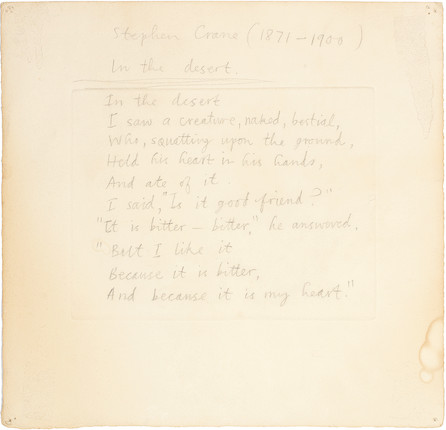 Stephen Crane (1871 – 1900)
In the desert.
In the desert
I saw a creature, naked, bestial,
Who, squatting upon the ground,
Held his heart in his hands,
And ate of it.
I said, "Is it good friend?"
"It is bitter – bitter," he answered,
"But I like it
Because it is bitter,
And because it is my heart."